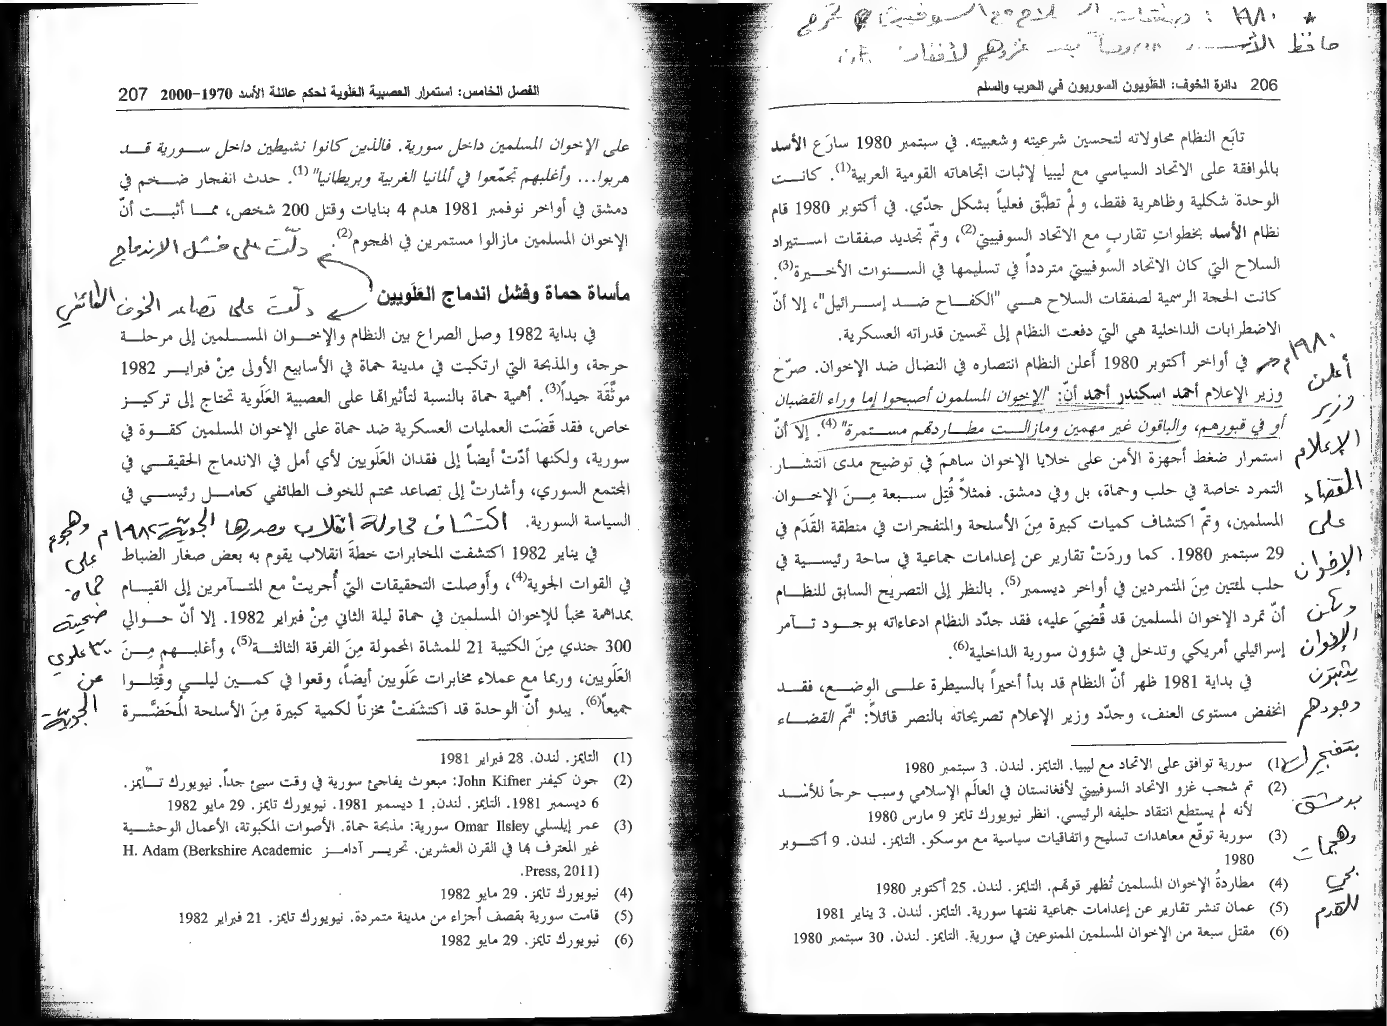 * ١٩٨٠ : صفقات السلاح مع السوفييت تحرج
حافظ الأسد خصوصاً بعد غزوهم لأفغانستان
206 دائرة الخوف: العلويون السوريون في الحرب والسلم
تابَع النظام محاولاته لتحسين شرعيته وشعبيته. في سبتمبر 1980 سارَع الأسد
بالموافقة على الاتحاد السياسي مع ليبيا لإثبات اتجاهاته القومية العربية(1). كانت
الوحدة شكلية وظاهرية فقط، ولمْ تطبَّق فعلياً بشكل جدّي. في أكتوبر 1980 قام
نظام الأسد بخطواتِ تقاربٍ مع الاتحاد السوفييتي(2)، وتمّ تجديد صفقات استيراد
السلاح التي كان الاتحاد السوفييتي متردداً في تسليمها في السنوات الأخيرة(3).
كانت الحجة الرسمية لصفقات السلاح هي "الكفاح ضد إسرائيل"، إلا أنّ
الاضطرابات الداخلية هي التي دفعت النظام إلى تحسين قدراته العسكرية.
في أواخر أكتوبر 1980 أَعلن النظام انتصاره في النضال ضد الإخوان. صرّح
وزير الإعلام أحمد اسكندر أحمد أنّ: "الإخوان المسلمون أصبحوا إما وراء القضبان
أو في قبورهم، والباقون غير مهمين ومازالت مطاردتهم مستمرة"(4). إلا أنّ
استمرار ضغط أجهزة الأمن على خلايا الإخوان ساهمَ في توضيح مدى انتشار
التمرد خاصة في حلب وحماة، بل وفي دمشق. فمثلاً قُتِل سبعة مِنَ الإخوان
المسلمين، وتمّ اكتشاف كميات كبيرة مِنَ الأسلحة والمتفجرات في منطقة القَدَم في
29 سبتمبر 1980. كما وردَتْ تقارير عن إعدامات جماعية في ساحة رئيسية في
حلب لمئتين مِنَ المتمردين في أواخر ديسمبر(5). بالنظر إلى التصريح السابق للنظام
أنّ تمرد الإخوان المسلمين قد قُضِيَ عليه، فقد جدّد النظام ادعاءاته بوجود تآمر
إسرائيلي أمريكي وتدخل في شؤون سورية الداخلية(6).
في بداية 1981 ظهر أنّ النظام قد بدأ أخيراً بالسيطرة على الوضع، فقد
انخفض مستوى العنف، وجدّد وزير الإعلام تصريحاته بالنصر قائلاً: "تمّ القضاء
١٩٨٠م
أعلن
وزير
الإعلام
القضاء
على
الإخوان
ولكن
الإخوان
يثبتون
وجودهم
بتفجيرات
بدمشق
وهجمات
بحي
القدم
(1) سورية توافق على الاتحاد مع ليبيا. التايمز. لندن. 3 سبتمبر 1980
(2) تم شجب غزو الاتحاد السوفييتي لأفغانستان في العالَم الإسلامي وسبب حرجاً للأسد
لأنه لم يستطع انتقاد حليفه الرئيسي. انظر نيويورك تايمز 9 مارس 1980
(3) سورية توقّع معاهدات تسليح واتفاقيات سياسية مع موسكو. التايمز. لندن. 9 أكتوبر
1980
(4) مطاردةُ الإخوان المسلمين تُظهر قوتهم. التايمز. لندن. 25 أكتوبر 1980
(5) عمان تنشر تقارير عن إعدامات جماعية نفتها سورية. التايمز. لندن. 3 يناير 1981
(6) مقتل سبعة من الإخوان المسلمين الممنوعين في سورية. التايمز. لندن. 30 سبتمبر 1980
الفصل الخامس: استمرار العصبية العَلَوية لحكم عائلة الأسد 1970-2000 207
على الإخوان المسلمين داخل سورية. فالذين كانوا نشيطين داخل سورية قد
هربوا... وأغلبهم تجمّعوا في ألمانيا الغربية وبريطانيا"(1). حدث انفجار ضخم في
دمشق في أواخر نوفمبر 1981 هدم 4 بنايات وقتل 200 شخص، مما أثبت أنّ
الإخوان المسلمين مازالوا مستمرين في الهجوم(2).
دلّت على فشل الاندماج
مأساة حماة وفشل اندماج العَلَويين
دلّت على تصاعد الخوف الطائفي
في بداية 1982 وصل الصراع بين النظام والإخوان المسلمين إلى مرحلة
حرجة، والمذبحة التي ارتكبت في مدينة حماة في الأسابيع الأولى مِنْ فبراير 1982
موثَّقة جيداً(3). أهمية حماة بالنسبة لتأثيراتها على العصبية العَلَوية تحتاج إلى تركيز
خاص، فقد قضَت العمليات العسكرية ضد حماة على الإخوان المسلمين كقوة في
سورية، ولكنها أدّتْ أيضاً إلى فقدان العَلَويين لأي أمل في الاندماج الحقيقي في
المجتمع السوري، وأشارتْ إلى تصاعد محتم للخوف الطائفي كعامل رئيسي في
السياسة السورية.
اكتشاف محاولة انقلاب مصدرها الجوية ١٩٨٢م وهجوم
على
حماة
ضحيته
٣٠٠ علوي
من
الجوية
في يناير 1982 اكتشفت المخابرات خطةَ انقلاب يقوم به بعض صغار الضباط
في القوات الجوية(4)، وأَوصلت التحقيقات التي أُجريتْ مع المتآمرين إلى القيام
بمداهمة مخبأ للإخوان المسلمين في حماة ليلة الثاني مِنْ فبراير 1982. إلا أنّ حوالي
300 جندي مِنَ الكتيبة 21 للمشاة المحمولة مِنَ الفرقة الثالثة(5)، وأغلبهم مِنَ
العَلَويين، وربما مع عملاء مخابرات عَلَويين أيضاً، وقعوا في كمين ليلي وقُتِلوا
جميعاً(6). يبدو أنّ الوحدة قد اكتشَفتْ مخزناً لكمية كبيرة مِنَ الأسلحة المُحَضَّرة
(1) التايمز. لندن. 28 فبراير 1981
(2) جون كيفنر John Kifner: مبعوث يفاجئ سورية في وقت سيئ جداً. نيويورك تايمز.
6 ديسمبر 1981. التايمز. لندن. 1 ديسمبر 1981. نيويورك تايمز. 29 مايو 1982
(3) عمر إيلسلي Omar Ilsley سورية: مذبحة حماة. الأصوات المكبوتة، الأعمال الوحشية
غير المعترف بها في القرن العشرين. تحرير آدامز H. Adam (Berkshire Academic
Press, 2011).
(4) نيويورك تايمز. 29 مايو 1982
(5) قامت سورية بقصف أجزاء من مدينة متمردة. نيويورك تايمز. 21 فبراير 1982
(6) نيويورك تايمز. 29 مايو 1982